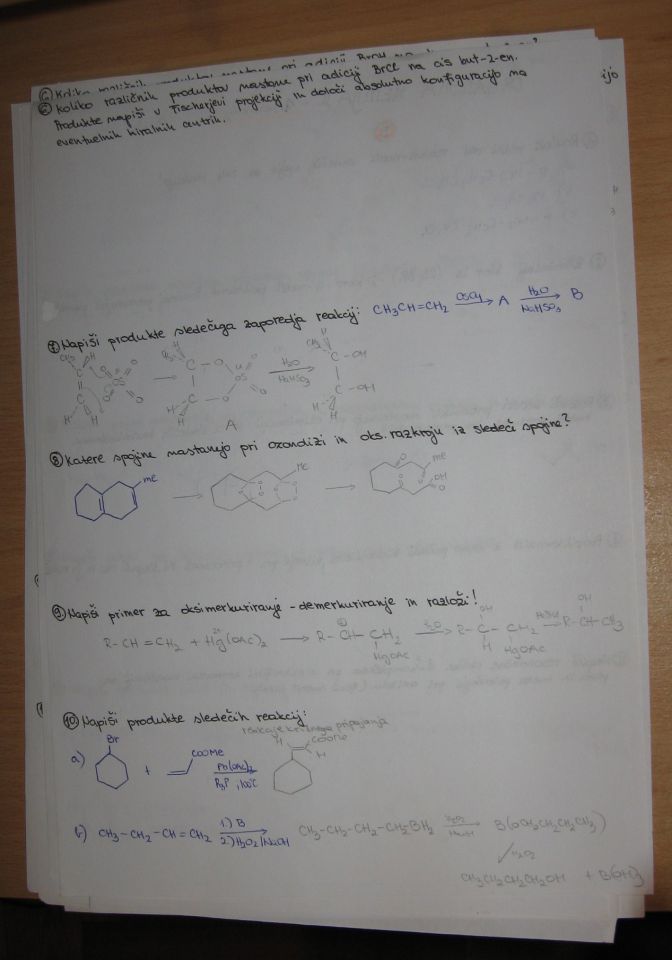 ⑥ Koliko različnih produktov nastane pri adiciji BrCl na cis but-2-en.
Produkte napiši v Fischerjevi projekciji in določi absolutno konfiguracijo na
eventuelnih kiralnih centrih.
ijo
⑦ Napiši produkte sledečega zaporedja reakcij: CH3CH=CH2 OsO4 → A H2O NaHSO3 → B
CH3 H O O Os O O C C H H
CH3 H C O O Os O O C H H
H2O NaHSO3
CH3 H C-OH C-OH H H
A
⑧ Katere spojine nastanejo pri ozonolizi in oks. razkroju iz sledeči spojine?
me Me me OH O
⑨ Napiši primer za oksimerkuriranje - demerkuriranje in razloži!
R-CH=CH2 + Hg(OAc)2 → R-CH-CH2 HgOAc H2O → R-C-CH2 OH H HgOAc → R-CH-CH3 OH
⑩ Napiši produkte sledečih reakcij:
a) Br + COOMe Pd(OAc)2 R3P, 100°C → H COOMe H
b) CH3-CH2-CH=CH2 1.) B 2.) H2O2/NaOH → CH3-CH2-CH2-CH2BH2 H2O2 NaOH → B(OCH2CH2CH2CH3)
H2O2
CH3CH2CH2CH2OH + B(OH)3